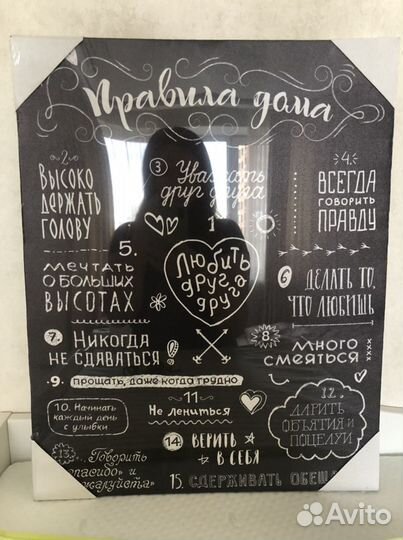 Правила дома
1
Любить
друг
друга
2.
Высоко
держать
голову
3
Уважать
друг друга
4.
Всегда
говорить
правду
5.
мечтать
о больших
высотах
6
делать то,
что любишь
7.
Никогда
не сдаваться
8.
много
смеяться
9. прощать, даже когда трудно
10. Начинать
каждый день
с улыбки
11
Не лениться
12.
Дарить
объятия и
поцелуи
13.
Говорить
14
верить
в себя
15. сдерживать
Avito